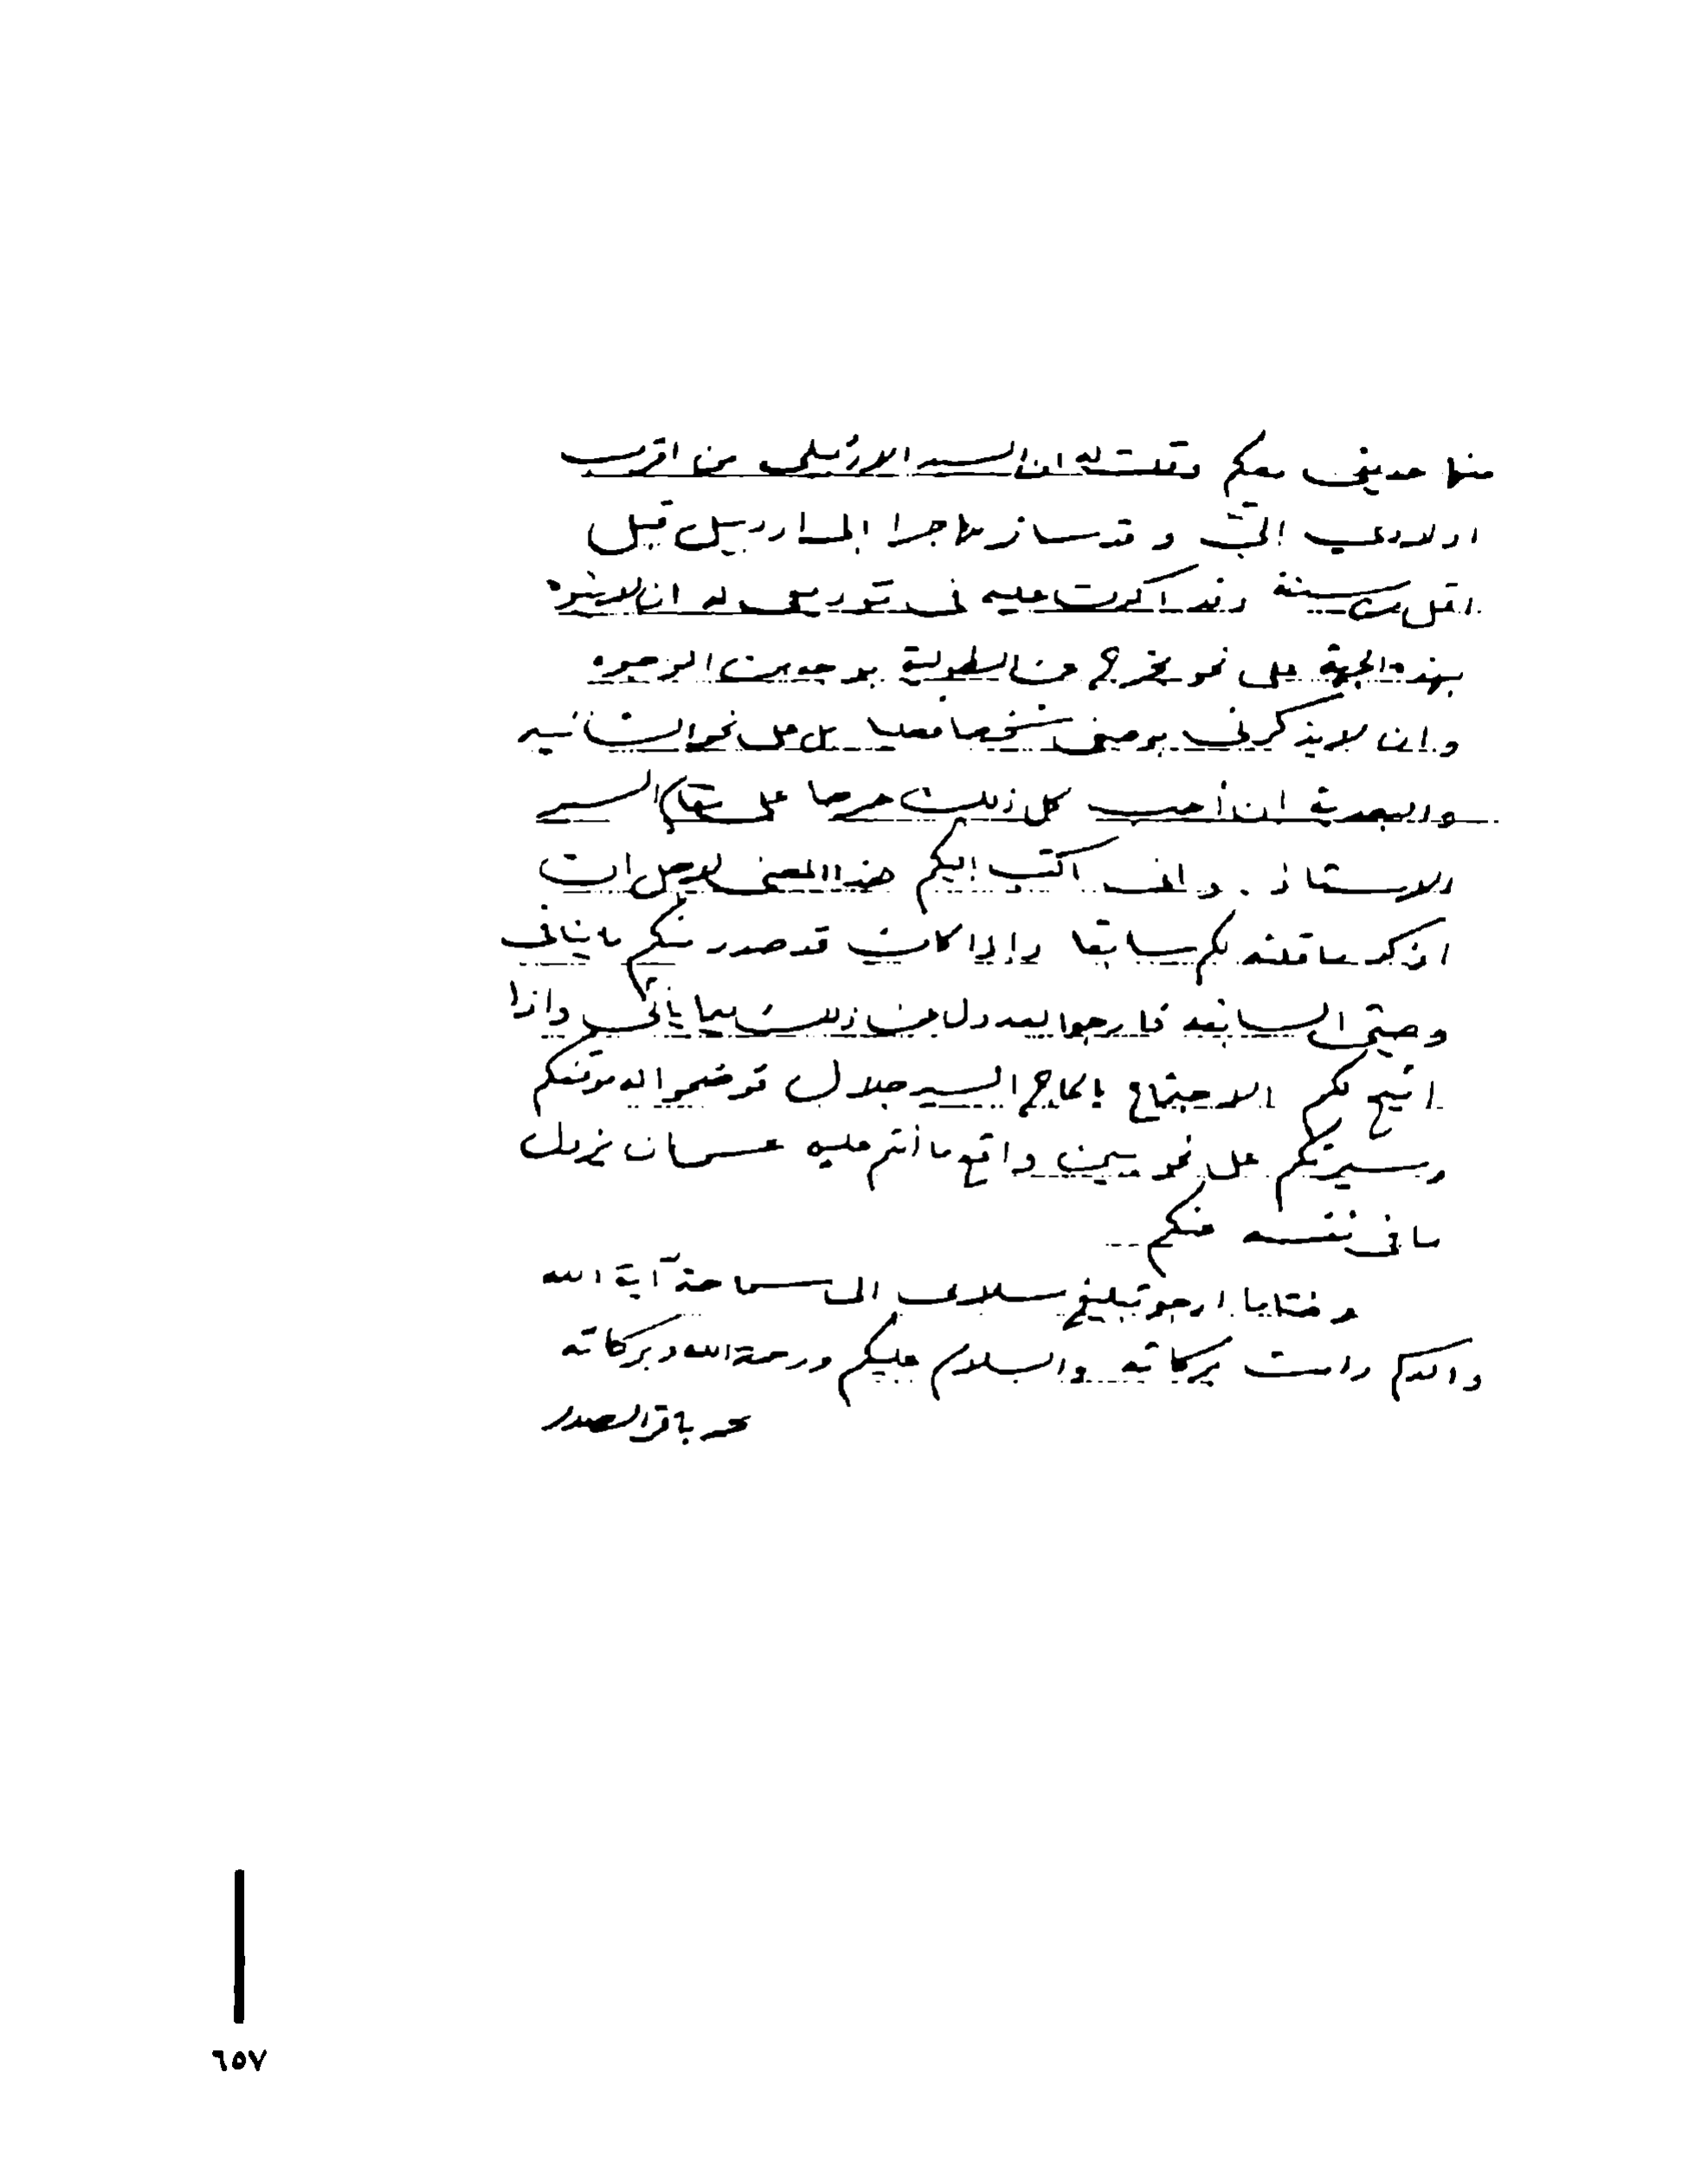 منها حديثي معكم وقلت له ان السيد الاردبيلي من اقرب
اولادي اليّ وقد سافر مهاجرا الى اردبيل قبل
اقل من سنة وقد اكدت عليه في توديعي له ان لا ينوه
بهذه الجهة على نحو يخرج عن الطولية بوجه من الوجوه
وان لا يذكرني بوصفي شخصا فعليا بل على نحو الشأنية
والبعدية ان أحب كل ذلك حرصا على مقام السيد
الاستاذ . واني اكتب اليكم هذا المعنى لاجل ان
اذكد ما قلته لكم سابقا وإذا كان قد صدر منكم ما ينافي
وصيتي السابقة فارجو العدول عن ذلك فيما يأتي واذا
اتيح لكم الاجتماع بالحاج السيد جلال توضحوا له موقفكم
وسيرتكم على نحو يبين واقع ما أنتم عليه عسى ان يزول
ما في نفسه عنكم
وختاما ارجو تبليغ سلامي الى سماحة آية الله
والدكم دامت بركاته والسلام عليكم ورحمة الله وبركاته
محمد باقر الصدر
٦٥٧